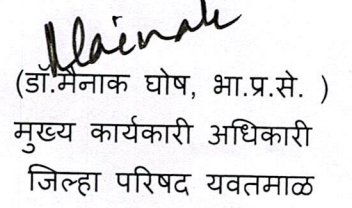 Mainak
(डॉ.मैनाक घोष, भा.प्र.से. )
मुख्य कार्यकारी अधिकारी
जिल्हा परिषद यवतमाळ